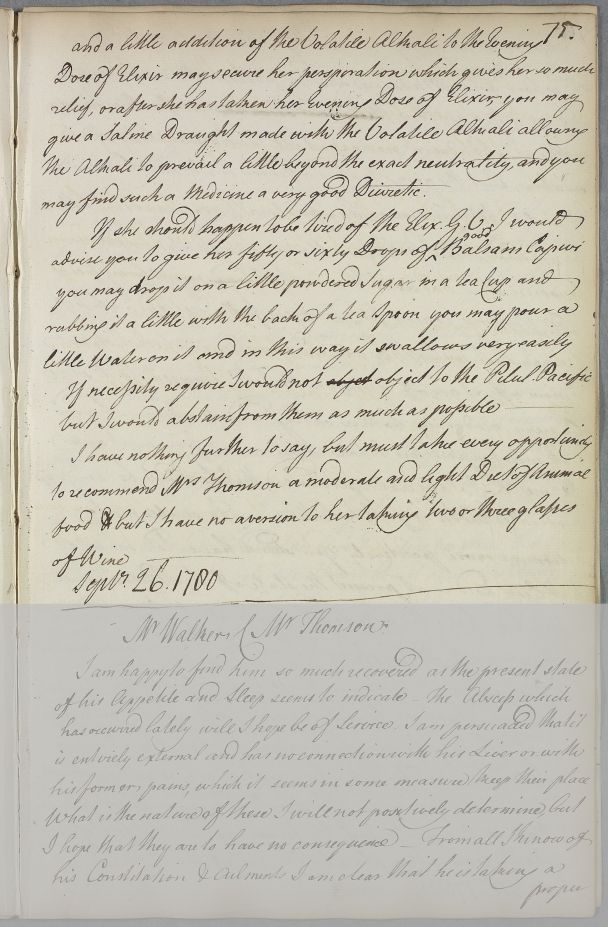 75.
and a little addition of the Volatile Alkali to the Evening
Dose of Elixir may secure her perspiration which gives her so much
relief, or after she has taken her Evening Dose of Elixir, you may
give a Saline Draught made with the Volatile Alkali allowing
the Alkali to prevail a little beyond the exact neutrality, and you
may find such a Medicine a very good Diuretic.
If she should happen to be tired of the Elix. G. C. I would
advise you to give her fifty or sixty Drops of good Balsam Capivi
you may drop it on a little powdered Sugar in a tea Cup and
rubbing it a little with the back of a tea Spoon you may pour a
little Water on it and in this way it swallows very easily
If necessity require I would not object to the Pilul Pacific
but I would abstain from them as much as possible
I have nothing further to say, but must take every opportunity
to recommend Mrs Thomson a moderate and light Diet of Animal
food & but I have no aversion to her taking two or three glasses
of Wine
Septr. 26. 1780
Mr Walker C Mr Thomson
I am happy to find him so much recovered as the present state
of his Appetite and Sleep seems to indicate – the Abscess which
has occured lately will I hope be of Service. I am persuaded that it
is entirely external and has no connection with his Liver or with
his former pains, which it seems in some measure keep their place
What is the nature of these I will not positively determine, but
I hope that they are to have no consequence – From all I know of
his Constitution & Ailments I am clear that he is taking a
proper